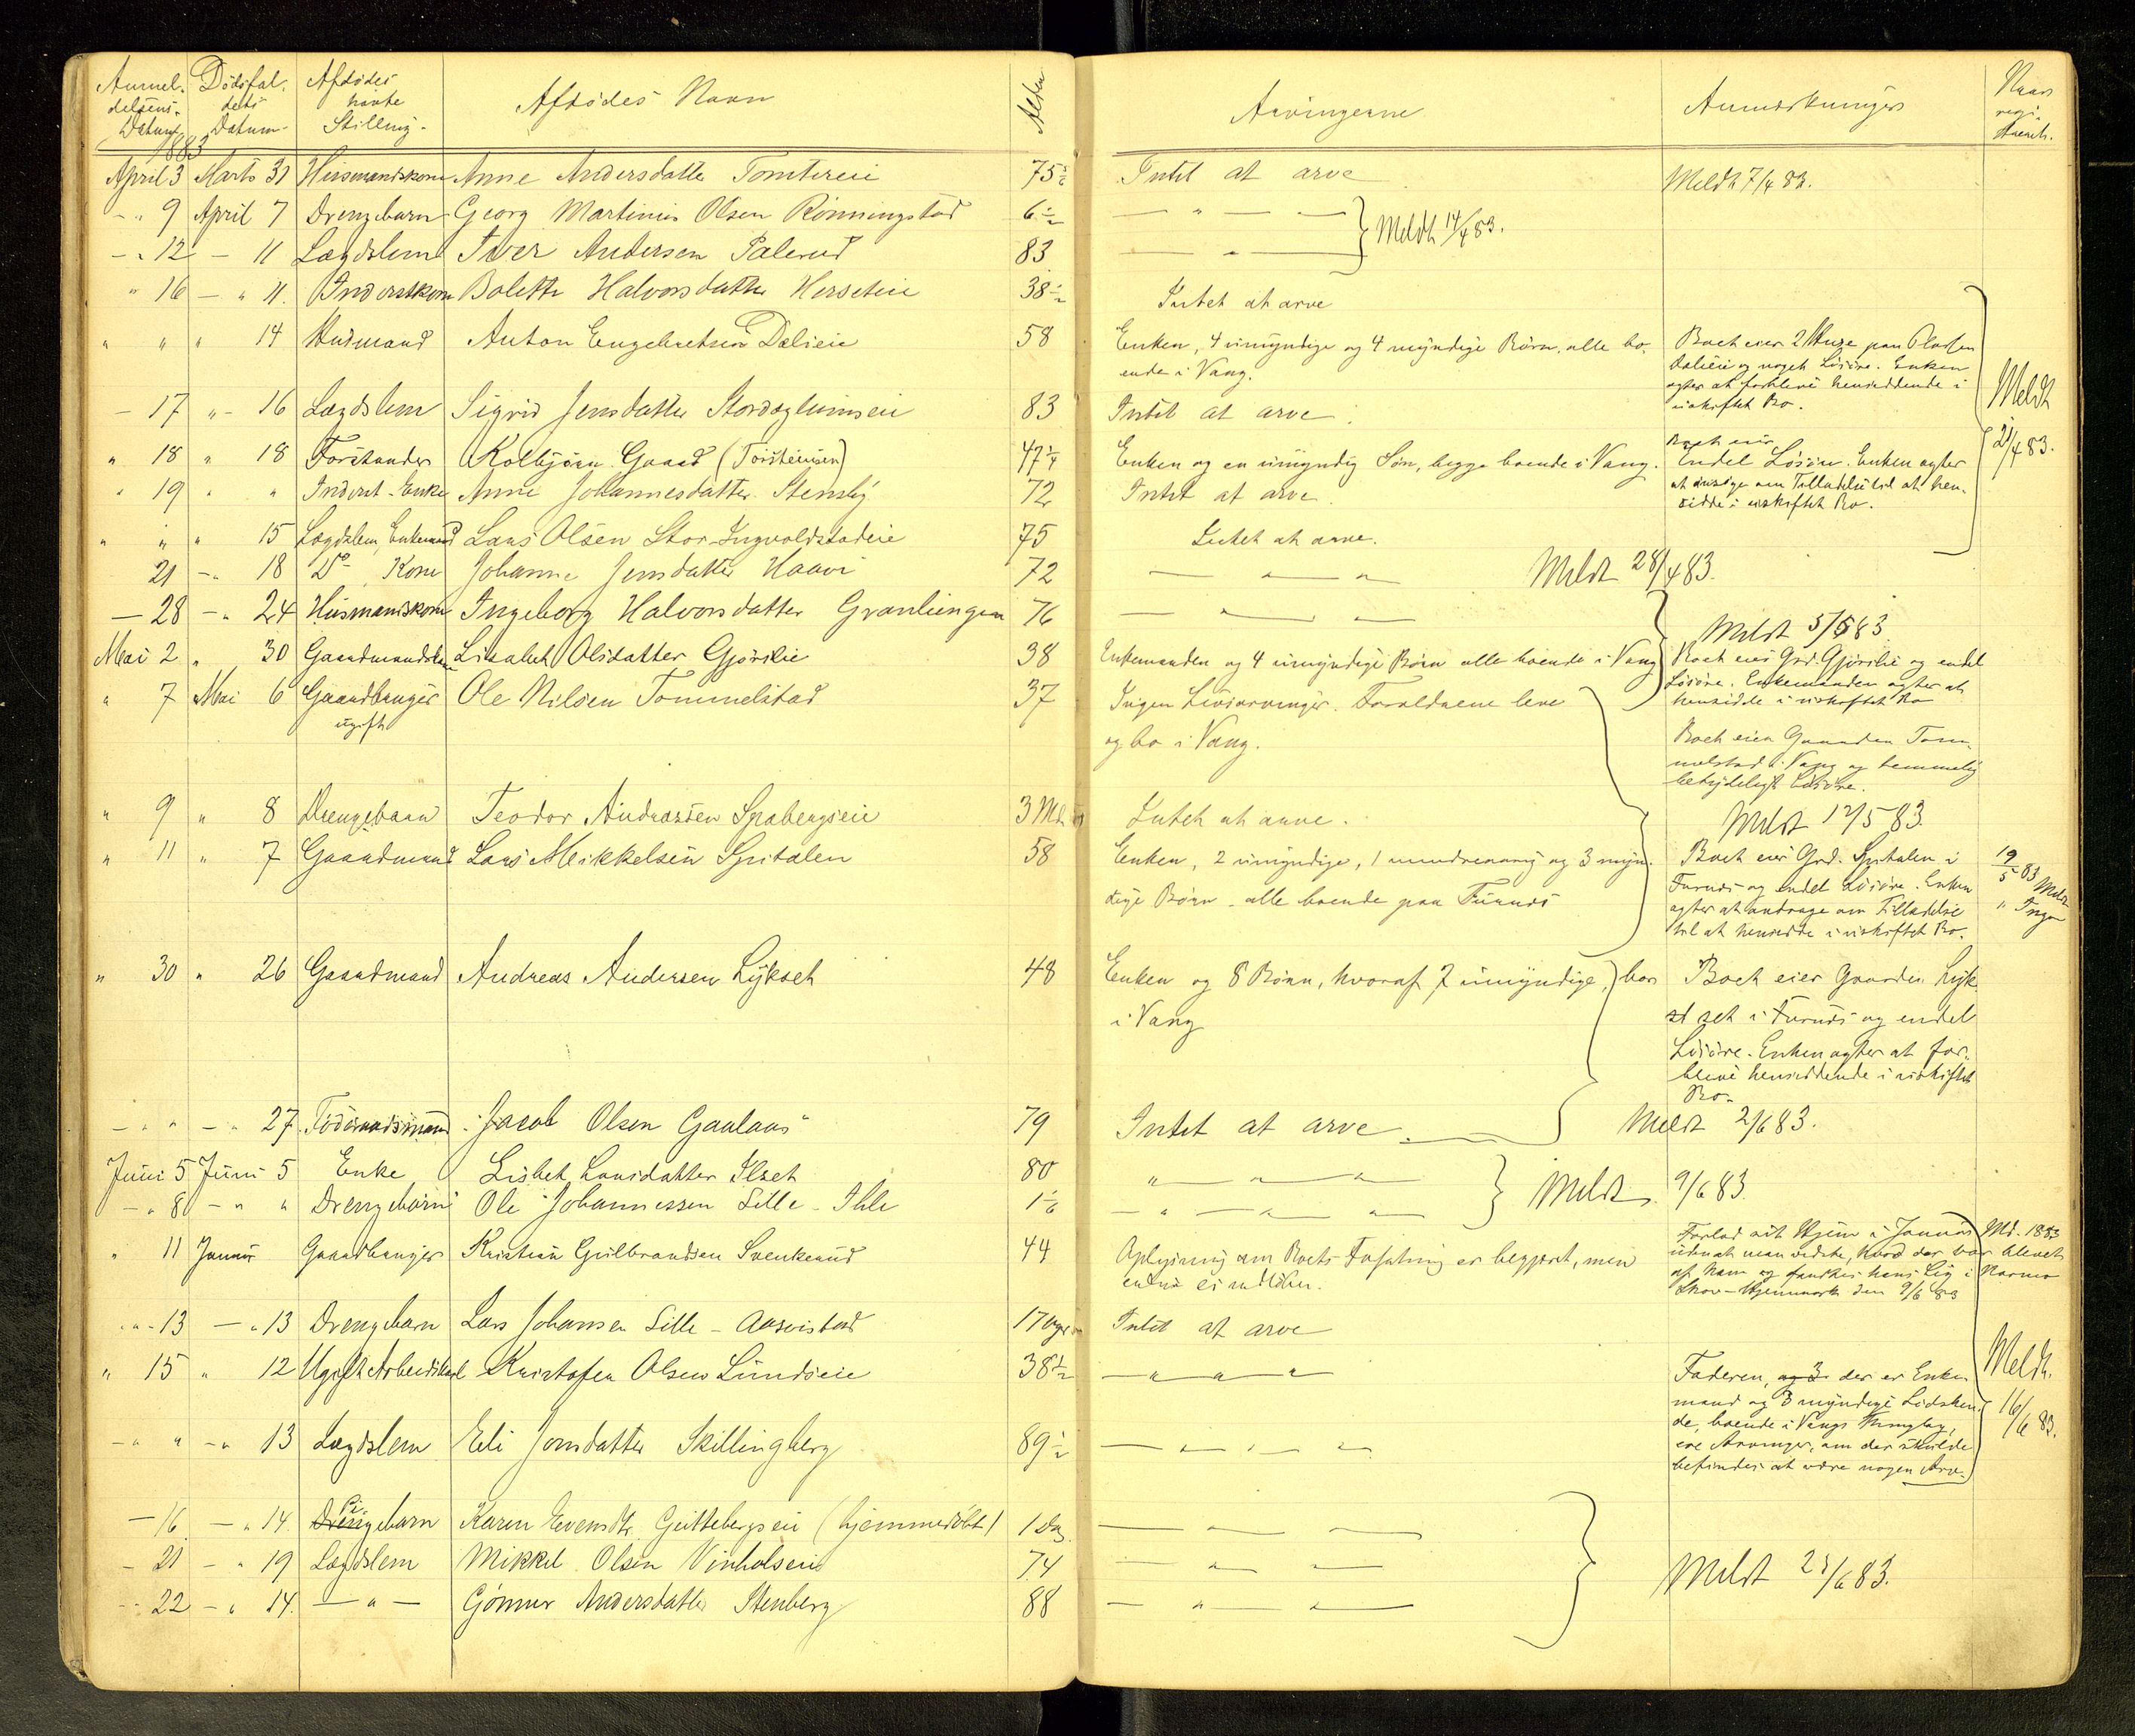 Anmel- Dødsfal- Afdødes Afdødes Navn Alder Arvingerne Anmærkninger Naar
delsens dets havte regi-
Datum Datum Stilling. strert.
1883
April 3 Marts 31 Husmandskone Anne Andersdatter Tomtereie 75½ Intet at arve Meldt 7/4 83.
" 9 April 7 Drengebarn Georg Martinius Olsen Rønningstad 6½ — " — — } Meldt 14/4 83.
" 12 — 11 Lægdslem Iver Andersen Palerud 83 — " —
" 16 — " 11. Inderstkone Bolette Halvorsdatter Herseteie 38½ Intet at arve
" " " 14 Husmand Anton Engebretsen Dalieie 58 Enken, 4 umyndige og 4 myndige Børn, alle bo- Boet eier 2 Huse paa Pladsen
ende i Vang. Dalieie og noget Løsøre. Enken
agter at forblive hensiddende i
uskiftet Bo.
— 17 " - 16 Lægdslem Sigrid Jensdatter 83 Intet at arve Meldt 21/4 83.
" 18 " 18 Forstander Kolbjørn Gaard (Torsteinsen) 47¼ Enken og en umyndig Søn, begge boende i Vang. Boet eier
Endel Løsøre. Enken agter
" 19 " " Inderst-Enke Anne Johannesdatter Stensby 72 Intet at arve. at ansøge om Tilladelse til at hen-
sidde i uskiftet Bo.
" " " 15 Lægdslem, Enkemand Lars Olsen Stor-Ingvoldstadeie 75 Intet at arve.
21 — " 18 Do Kone Johanne Jensdatter Haave 72 — " — " Meldt 28/4 83.
— 28 — " 24 Husmandskone Ingeborg Halvorsdatter Granliengen 76 — " — Meldt 5/5 83.
Mai 2 " 30 Gaardmandskone Lisabet Olsdatter Gjørslie 38 Enkemanden og 4 umyndige Børn alle boende i Vang Boet eier Grd. Gjørslie og endel
Løsøre. Enkemanden agter at
hensidde i uskiftet Bo
" 7 Mai 6 Gaardbruger Ole Nilsen Tommelstad 37 Ingen Livsarvinger. Forældrene leve
ugift og bo i Vang. Boet eier Gaarden Tom-
melstad i Vang og temmelig
betydeligt Løsøre.
" 9 " 8 Drengebarn Teodor Andreassen Spabergseie 3 Md. Intet at arve. Meldt 12/5 83.
" 11 " 7 Gaardmand Lars Mikkelsen Spitalen 58 Enken, 2 umyndige, 1 mindreaarig og 3 myn- Boet eier Grd. Spitalen i 19/5 83 Meldt
dige Børn - alle boende paa Furnes Furnes og endel Løsøre. Enken " Ingen
agter at andrage om Tilladelse
til at hensidde i uskiftet Bo.
" 30 " 26 Gaardmand Andreas Andersen Lykset 48 Enken og 8 Børn, hvoraf 7 umyndige, bor Boet eier Gaarden Lyk-
i Vang set i Furnes og endel
Løsøre. Enken agter at for-
blive hensiddende i uskiftet
Bo.
— " " — " 27 Føderaadsmand Jacob Olsen Gaalaas 79 Intet at arve Meldt 2/6 83.
Juni 5 Juni 5 Enke Lisbet Larsdatter Ilset 80 " — " — " } Meldt 9/6 83.
— " 8 — " " Drengebarn Ole Johannessen Lille-Ihle 1½ — " — " — "
" 11 Januar Gaardbruger Kristian Gulbrandsen Svenkerud 44 Oplysning om Boets Forfatning er begjært, men Forlod sit Hjem i Januar Md. 1883
endnu ei meddelt. uden at man vidste, hvad der var blevet
af ham og fandtes hans Lig i
den 9/6 83
" - 13 — " 13 Drengebarn Lars Johansen Lille-Aasvistad 17 Dage Intet at arve
" 15 " 12 Ugift Arbeidskarl Kristofer Olsen Lundseie 38½ — " — " — " Faderen, og 3 der er Enke- Meldt.
mand og 3 myndige Lødsken- 16/6 83.
de, boende i Vangs Thinglag,
ere Arvinger, om der skulde
befindes at være nogen Arv.
— " " — " 13 Lægdslem Eli Jonsdatter Skillingberg 89½ — " — " — "
— 16 — " 14 Drengebarn Pi Karen Evensdtr. Guttebergseie (hjemmedøbt) 1 Dag — " — " —
— 21 — " 19 Lægdslem Mikkel Olsen Vinholseie 74 — " — " — Meldt 23/6 83.
— 22 — " 14. — " — Gønner Andersdatter Stenberg 88 — " — " —